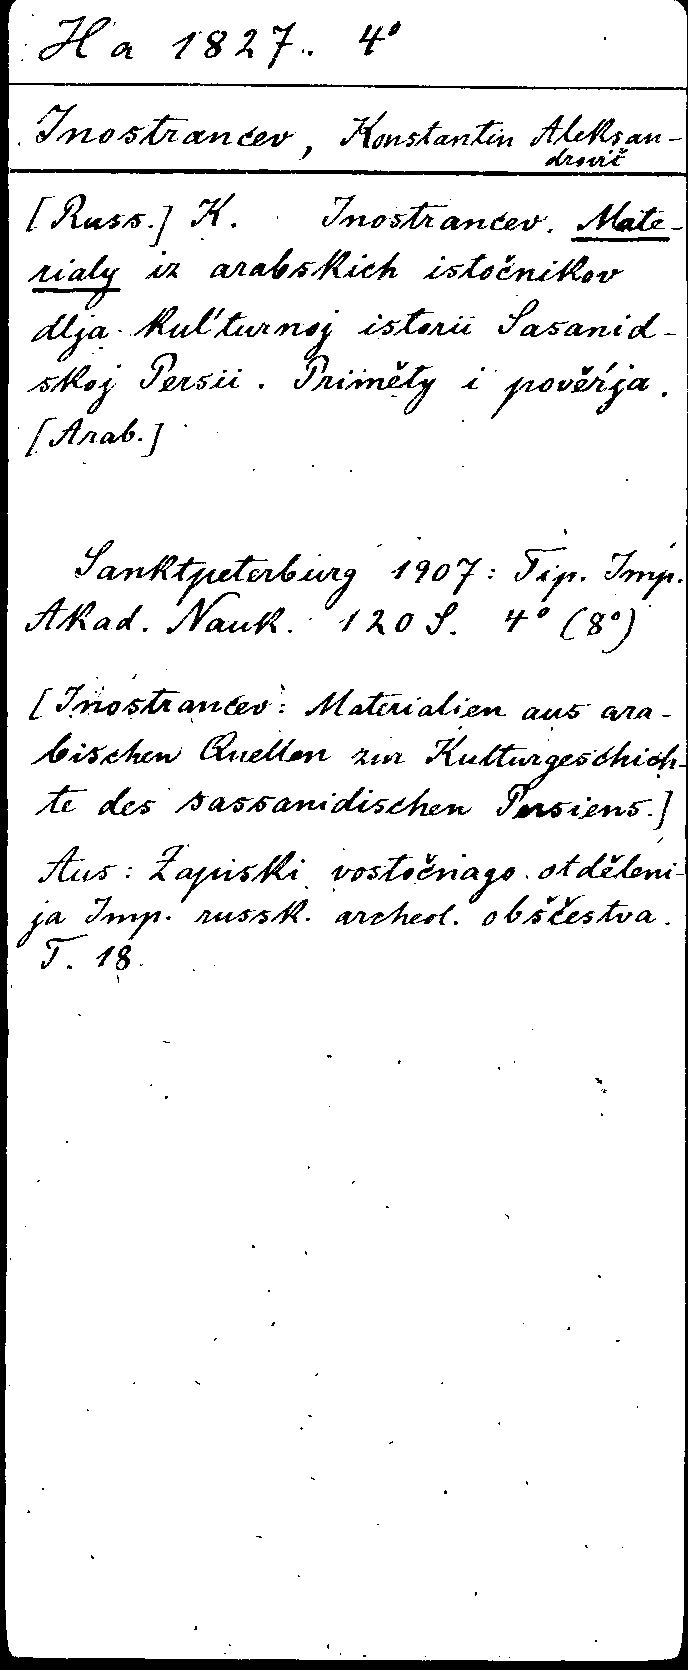 Ha 1827. 4°
Inostrancev, Konstantin Aleksan-
drovič
[Russ.] K. Inostrancev. Mate-
rialy iz arabskich istočnikov
dlja kul'turnoj istorii Sasanid-
skoj Persii. Priměty i pověr'ja.
[Arab.]
Sanktpeterburg 1907: Tip. Imp.
Akad. Nauk. 120 S. 4° (8°)
[Inostrancev: Materialien aus ara-
bischen Quellen zur Kulturgeschich-
te des sassanidischen Persiens.]
Aus: Zapiski vostočnago otděleni-
ja Imp. russk. archeol. obščestva.
T. 18.